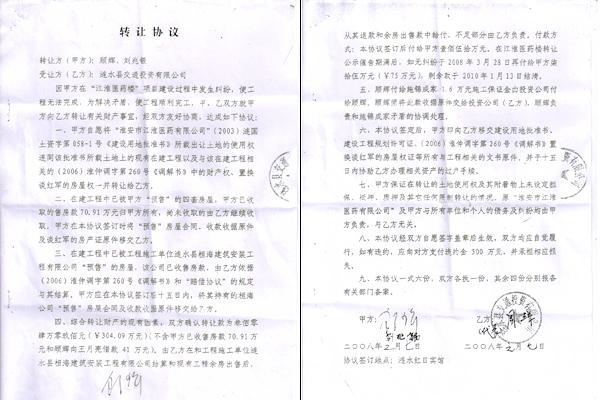 转让协议
转让方（甲方）：顾辉、刘兆银
受让方（乙方）：涟水县交通投资有限公司
因甲方在“江淮医药楼”项目建设过程中发生纠纷，使工
程无法完成，为解决矛盾，使工程顺利完工，甲、乙双方就甲
方向乙方转让有关财产事宜，经双方友好协商，达成如下协议：
一、甲方自愿将“淮安市江淮医药有限公司”(2003)涟国
土资字第058-1号《建设用地批准书》所载出让土地的使用权
连同该批准书所载土地上的现有在建工程以及与该在建工程相
关的(2006)淮仲调字第260号《调解书》中的财产权、置换
谈红军的房屋权一并转让给乙方。
二、在建工程中已被甲方“预售”的四套房屋，甲方已收
取的售房款70.91万元归甲方所有，尚未收取的由乙方继续收
取。甲方在本协议签订时将“预售”房屋合同、收款收据原件
及谈红军的房产证原件移交乙方。
三、在建工程中已被工程施工单位涟水县桓海建筑安装工程
有限公司“预售”的房屋，该公司已收售房款，由乙方依据
(2006)淮仲调字第260号《调解书》和“赔偿协议”的规定
与其结算。甲方应在本协议签订后十五日内，将其持有的桓海
公司“预售”房屋合同及收款收据原件移交给乙方。
四、综合转让财产的现有因素，双方确认转让款为叁佰零
肆万零玖佰元（￥304.09万元）（不含甲方已收售房款70.91万元
和顾辉向王月亮借款41万元）。由乙方在和工程施工单位涟
水县桓海建筑安装工程有限公司结算和现有工程余房出售后，
从其退款和余房出售款中给付，不足部分由乙方负责。付款方
式：本协议签订后付给甲方壹佰伍拾万元。在江淮医药楼转让
公示催告期满后，如无纠纷于2008年3月28日再付给甲方柒
拾伍万元（￥75万元），剩余款于2010年1月13日结清。
五、顾辉付给施锡成家1.6万元施工保证金由投资公司付
给顾辉，顾辉须将此款收据原件交给投资公司（乙方），顾辉负
责和施锡成家矛盾的协调处理。
六、本协议签定后，甲方即向乙方移交建设用地批准书、
建设工程规划许可证、(2006)淮仲调字第260号《调解书》
置换谈红军的房屋权证等所有与工程相关的文书原件，并于十五
日内协助乙方办理相关资产的过户手续。
七、甲方保证在转让的土地使用权及其附着物上未设定担
保、抵押、质押及其它任何限制转让的情况。原“淮安市江淮
医药有限公司”及甲方与所有单位和个人的债务及纠纷均由甲
方负责，与乙方无关。
八、本协议经双方自愿签字盖章后生效，双方均应自觉履
行，如有违约，应向对方支付违约金500万元，并承担相应损
失。
九、本协议一式六份，双方各执一份，其余四份分别报备
有关部门备案。
甲方：
乙方：
二〇〇八年二月七日
二〇〇八年二月七日
协议签订地点：涟水红日宾馆